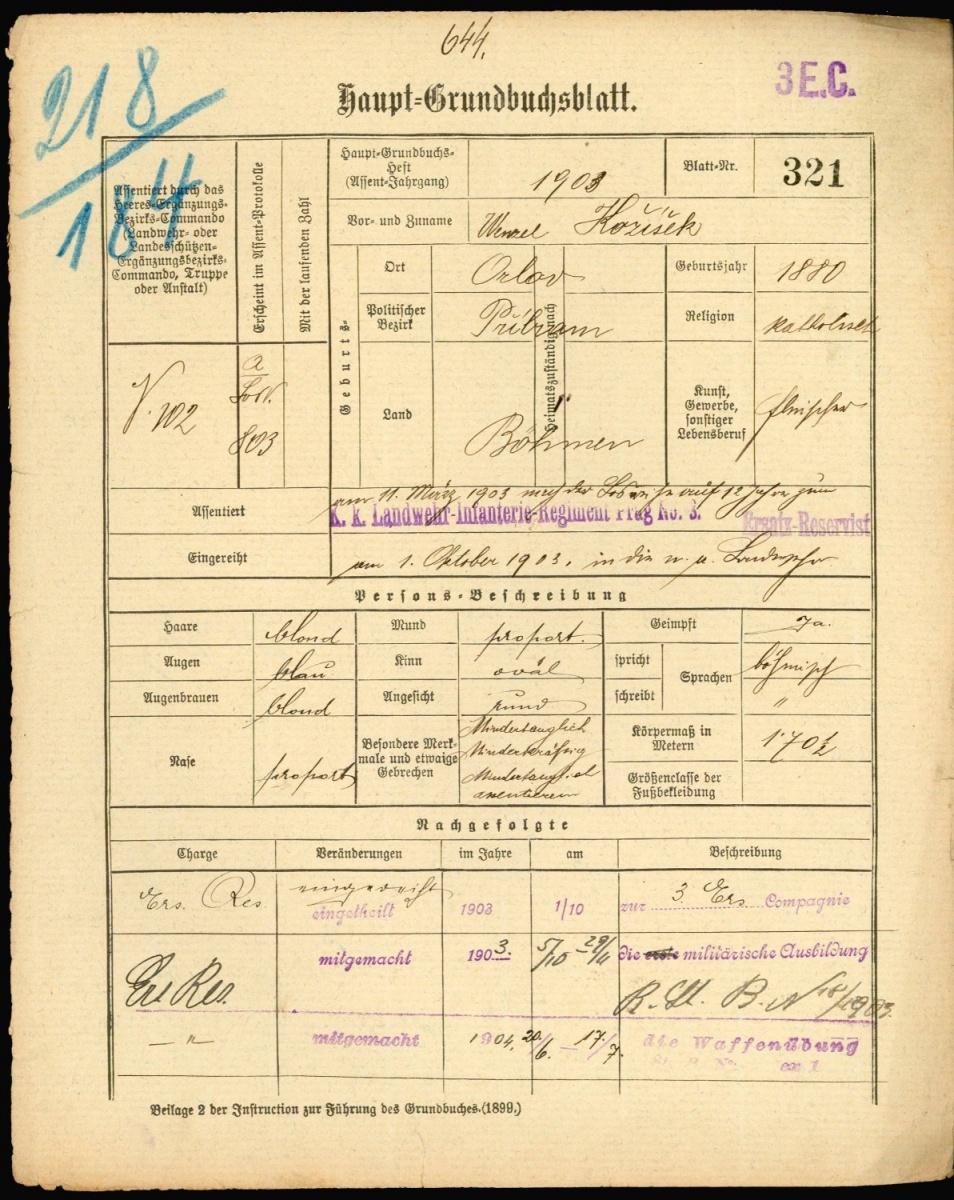 644.
218
184
3 E.C.
Haupt-Grundbuchsblatt.
Assentiert durch das
Heeres-Ergänzungs-
Bezirks-Commando
(Landwehr- oder
Landesschützen-
Ergänzungsbezirks-
Commando, Truppe
oder Anstalt)
Erscheint im Assent-Protokolle
Mit der laufenden Zahl
Haupt-Grundbuchs-
Heft
(Assent-Jahrgang)
1903
Blatt-Nr.
321
Vor- und Zuname
Wenzel Kožíšek
Geburts-
Ort
Orlov
Geburtsjahr
1880
Politischer
Bezirk
Příbram
Heimatszuständig nach
Religion
katholisch
Land
Böhmen
Kunst,
Gewerbe,
sonstiger
Lebensberuf
fleischer
N. 102
a
803
Assentiert
am 11. März 1903 nach der Losreihe auf 12 Jahre zum
K. k. Landwehr-Infanterie-Regiment Prag No. 3. Ersatz-Reservist
Eingereiht
am 1. Oktober 1903. in die n. a. Landwehr
Persons-Beschreibung
Haare blond
Mund proport.
Geimpft Ja.
Augen blau
Kinn oval
spricht
Sprachen
böhmisch
Augenbrauen blond
Angesicht rund
schreibt
"
Nase proport
Besondere Merk-
male und etwaige
Gebrechen
Mindertauglich
Minderkräftig
Mindertauglich
assentieren
Körpermaß in
Metern
1·70 1/2
Größenclasse der
Fußbekleidung
Nachgefolgte
Charge Veränderungen im Jahre am Beschreibung
Ers. Res. eingereiht
eingetheilt 1903 1/10 zur 3 Ers Compagnie
mitgemacht 1903. 5/10 – 29/11 die erste militärische Ausbildung
Ers Res. 
— " — mitgemacht 1904. 20/6. – 17/7. die Waffenübung
Beilage 2 der Instruction zur Führung des Grundbuches. (1899.)